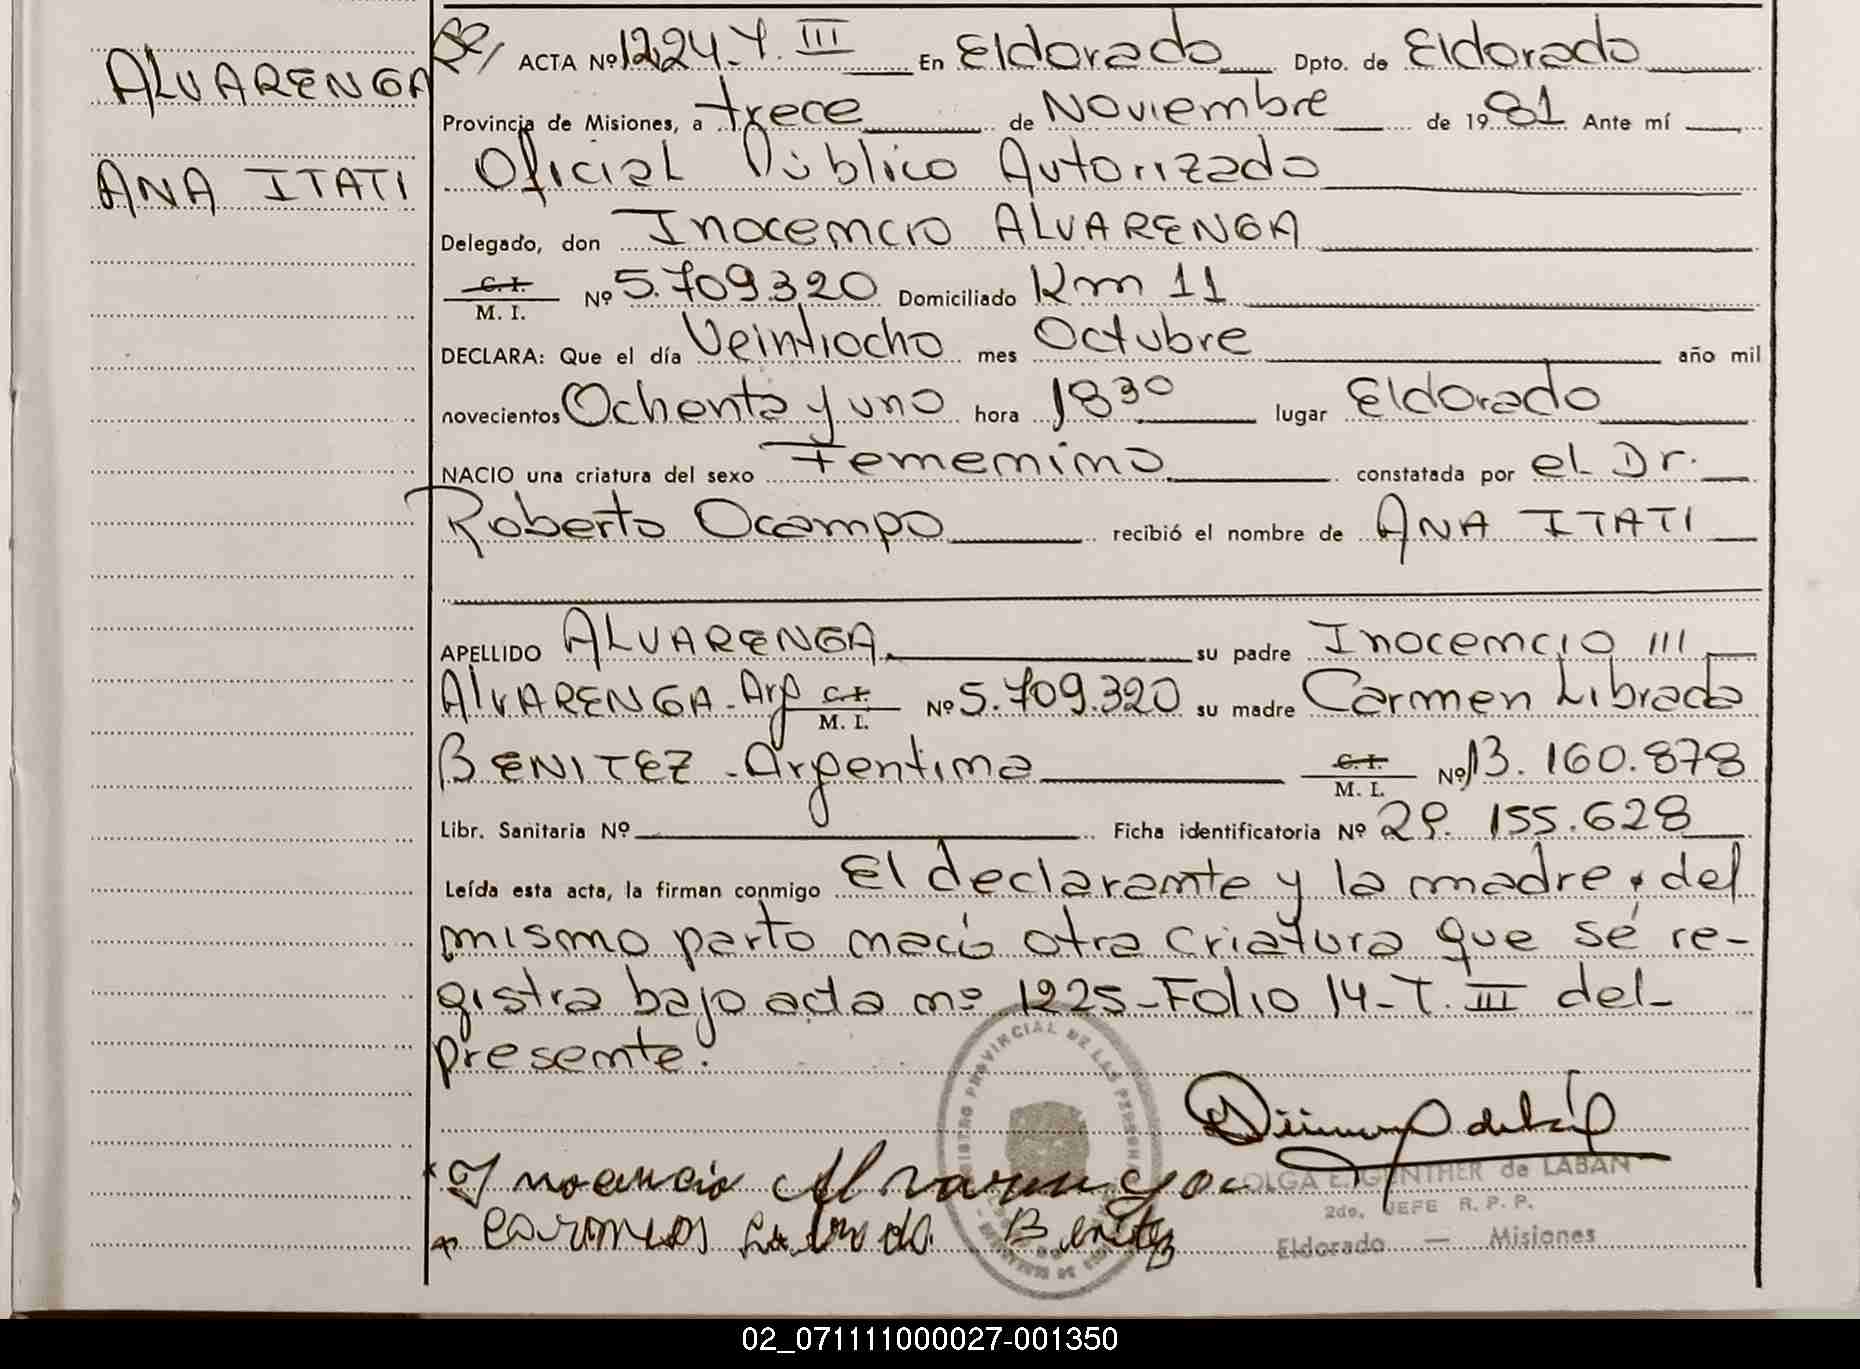 ALVARENGA
ANA ITATI
ACTA Nº 1224-T. III En Eldorado Dpto. de Eldorado
Provincia de Misiones, a trece de Noviembre de 1981 Ante mí
Oficial Público Autorizado
Delegado, don Inocencio ALVARENGA
C. I.
M. I. Nº 5.709.320 Domiciliado Km 11
DECLARA: Que el día Veintiocho mes Octubre año mil
novecientos Ochenta y uno hora 18³⁰ lugar Eldorado
NACIO una criatura del sexo Femenino constatada por el Dr.
Roberto Ocampo recibió el nombre de ANA ITATI
APELLIDO ALVARENGA su padre Inocencio ///
ALVARENGA-Arg C. I. M. I. Nº 5.709.320 su madre Carmen Librada
BENITEZ-Argentina C. I. M. I. Nº 13.160.878
Libr. Sanitaria Nº Ficha identificatoria Nº 29.155.628
Leída esta acta, la firman conmigo El declarante y la madre, del
mismo parto nació otra criatura que se re-
gistra bajo acta nº 1225-Folio 14-T. III del-
presente.
REGISTRO PROVINCIAL DE LAS PERSONAS
Inocencio Alvarenga
OLGA E. GÜNTHER de LABAN
2do. JEFE R. P. P.
Librada Benitez
Eldorado — Misiones
02_071111000027-001350